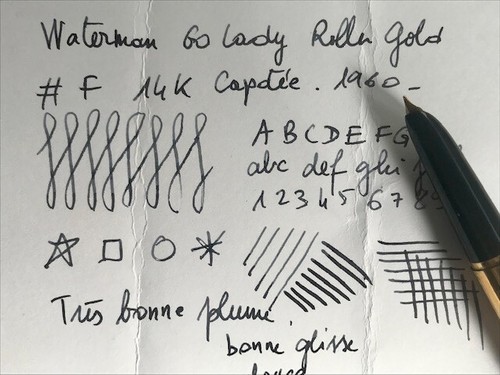 Waterman 60 Lady Roller Gold
# F 14K Captée. 1960_
A B C D E F G
abc def ghi j
1 2 3 4 5 6 7 8 9
Très bonne plume,
bonne glisse